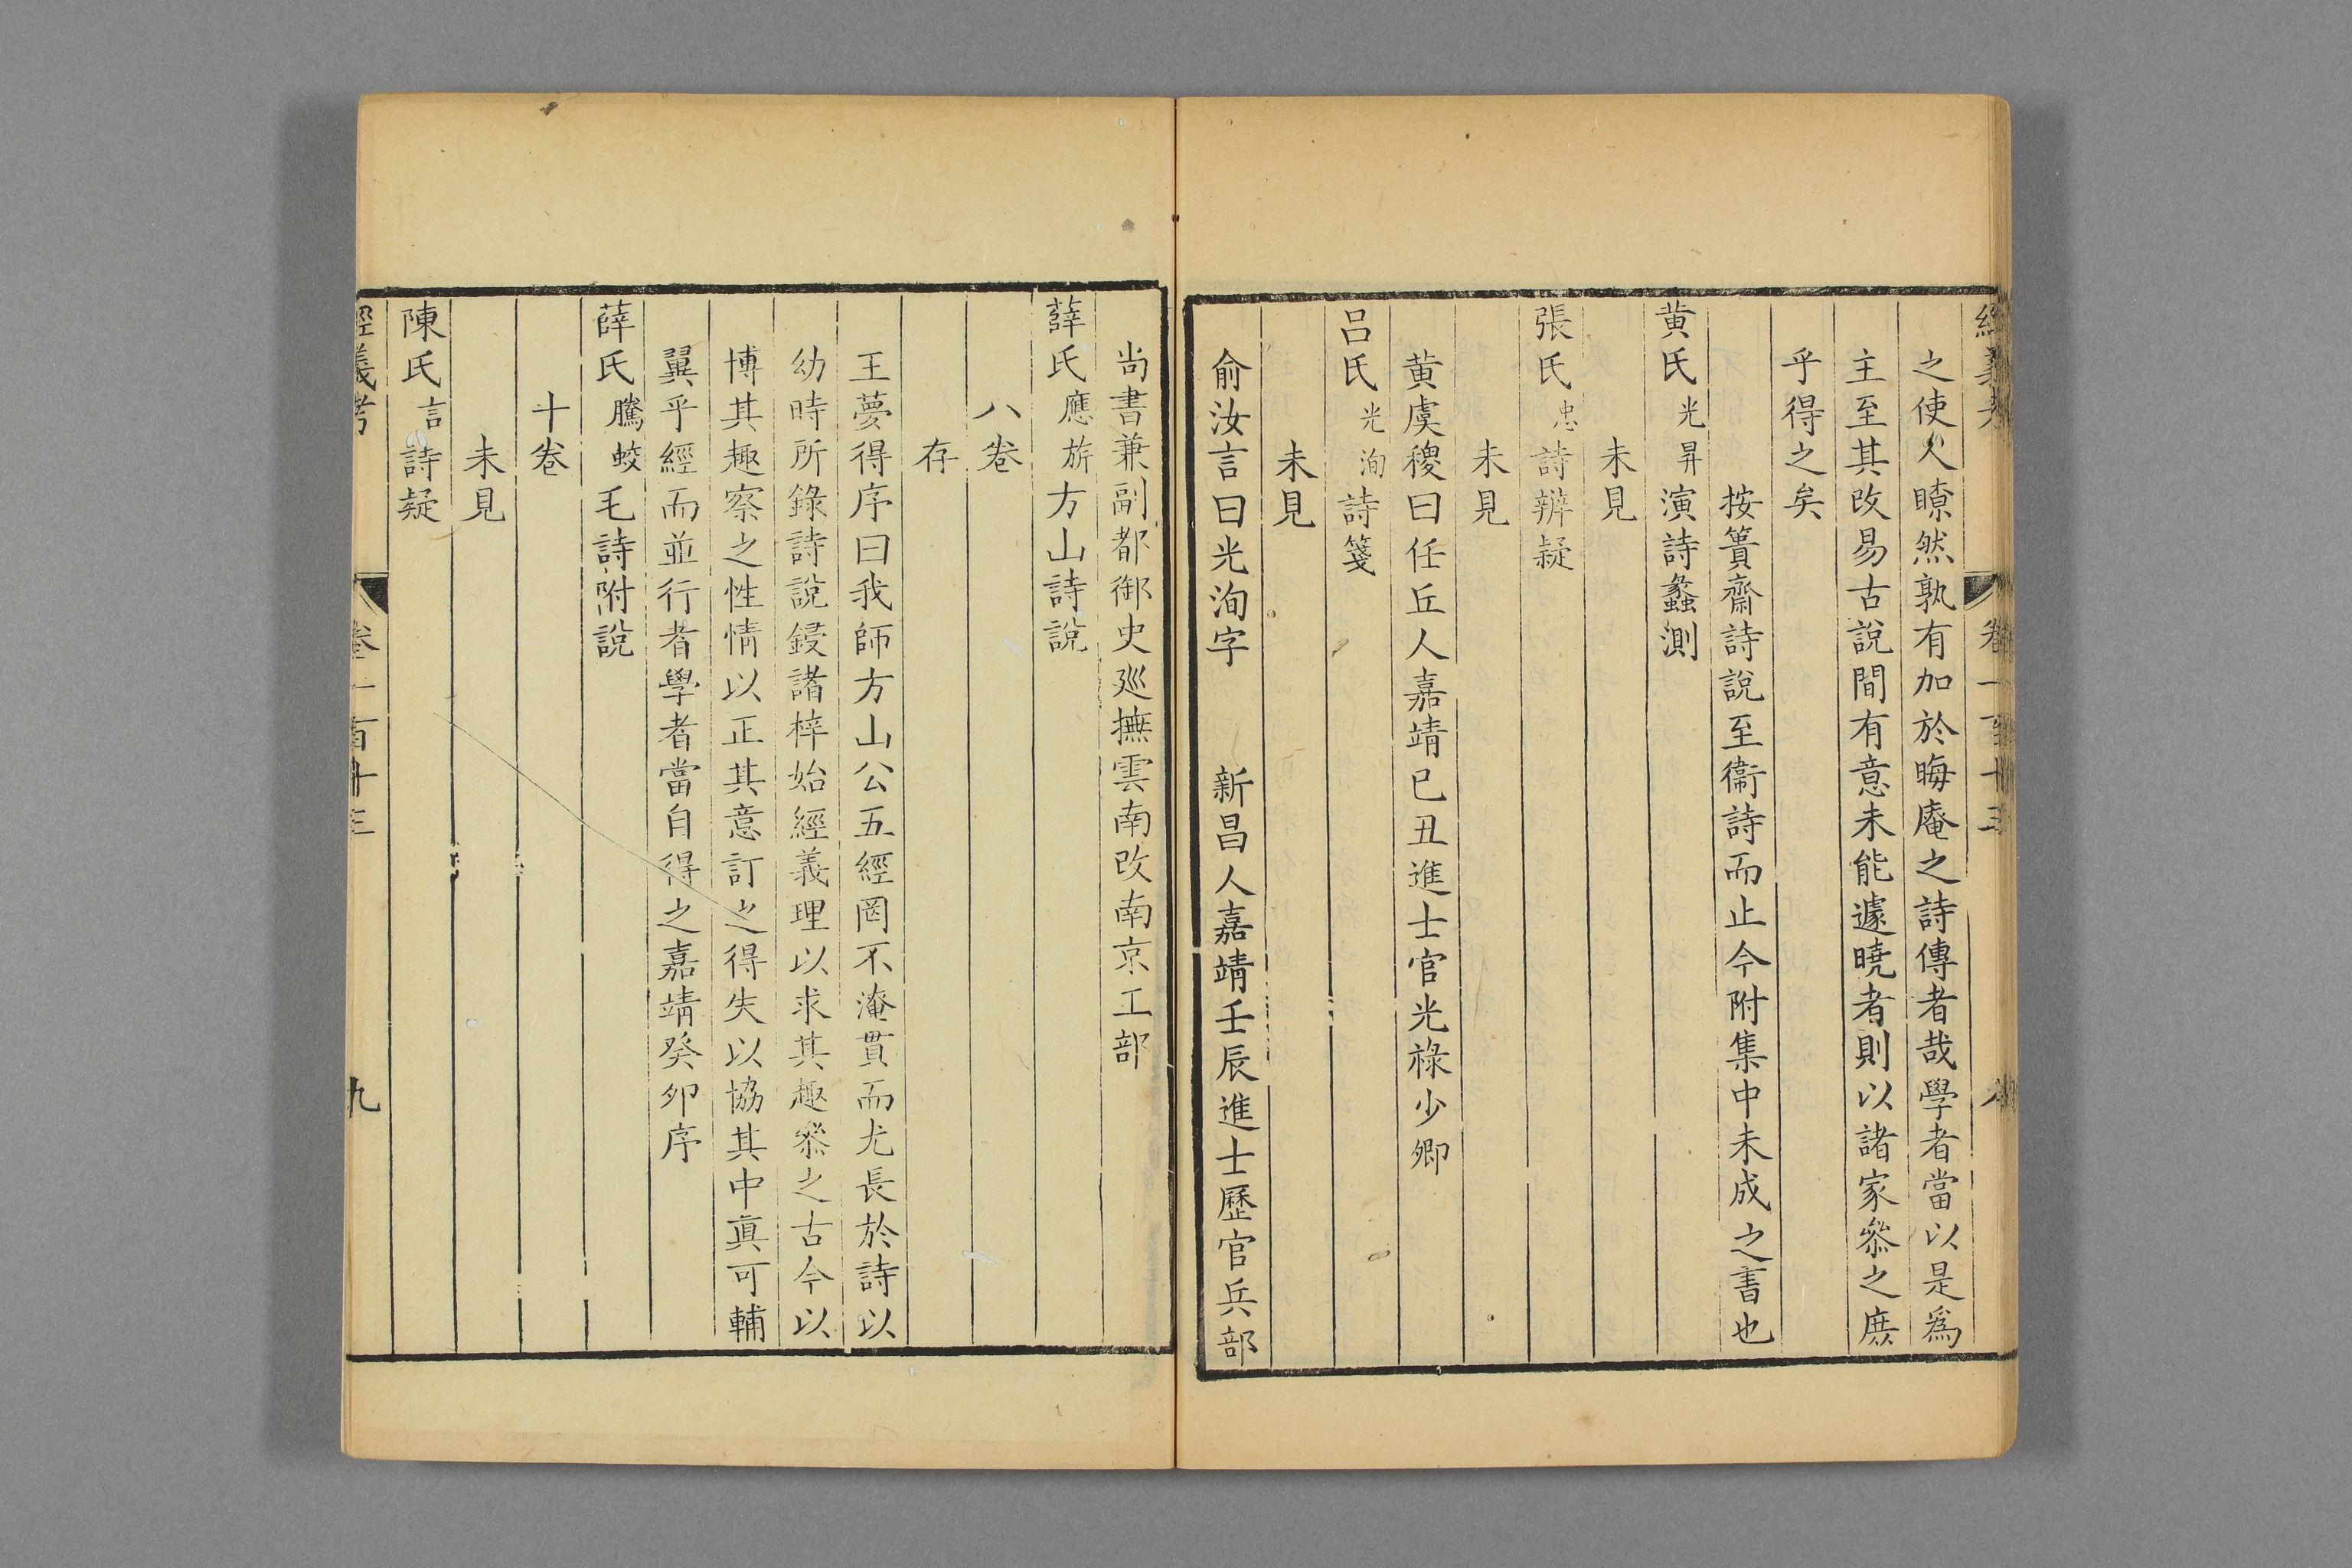 經義考 卷一百十三
之使人瞭然孰有加於晦庵之詩傳者哉學者當以是爲
主至其改易古說間有意未能遽曉者則以諸家叅之庶
乎得之矣
按簣齋詩說至衞詩而止今附集中未成之書也
黄氏光昇演詩蠡測
未見
張氏忠詩辨疑
未見
黄虞稷曰任丘人嘉靖已丑進士官光祿少卿
呂氏光洵詩箋
未見
俞汝言曰光洵字 新昌人嘉靖壬辰進士歷官兵部
尚書兼副都御史廵撫雲南改南京工部
薛氏應旂方山詩說
八卷
存
王夢得序曰我師方山公五經罔不淹貫而尤長於詩以
幼時所錄詩說鋟諸梓始經義理以求其趣叅之古今以
博其趣察之性情以正其意訂之得失以協其中眞可輔
翼乎經而並行者學者當自得之嘉靖癸卯序
薛氏騰蛟毛詩附說
十卷
未見
陳氏言詩疑
經義考 卷一百十三 九